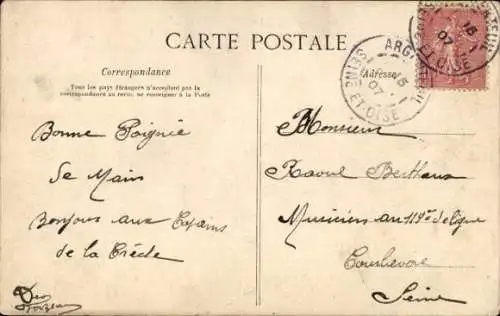 CARTE POSTALE
Correspondance
Tous les pays étrangers n'acceptent pas la
correspondance au recto, se renseigner à la Poste
Adresse
ARG
SEINE ET OISE
15
07
Bonne Poignée
de Main
Bonjour aux Copains
de la Crèche
Monsieur
Raoul
Musicien au 119e de ligne
Courbevoie
Seine